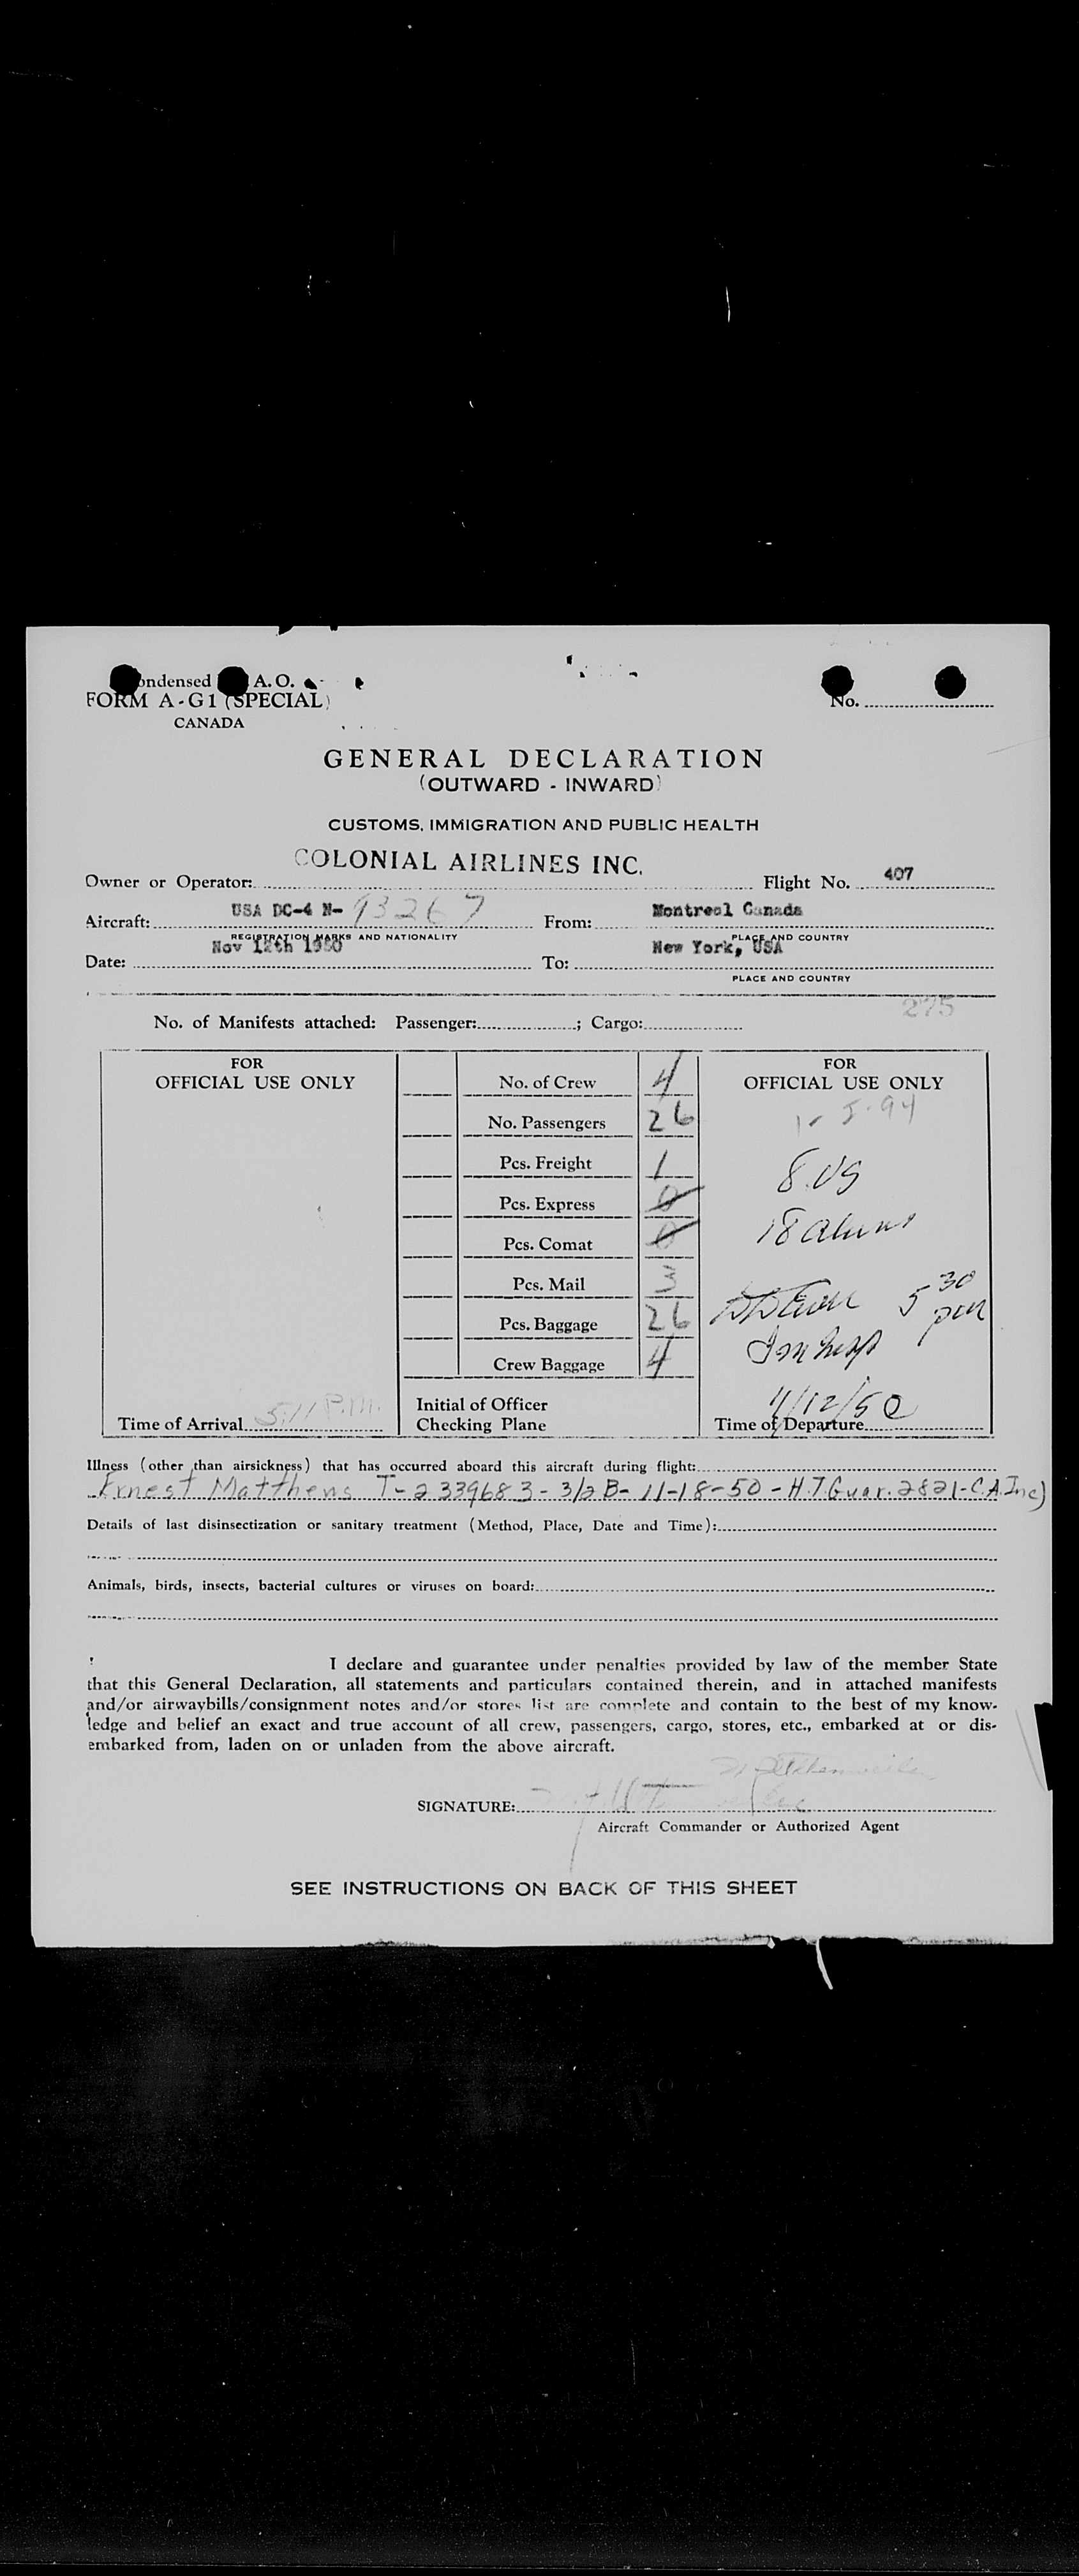 ondensed A. O.
FORM A-G1 (SPECIAL)
CANADA
No.
GENERAL DECLARATION
(OUTWARD - INWARD)
CUSTOMS, IMMIGRATION AND PUBLIC HEALTH
COLONIAL AIRLINES INC.
Owner or Operator: Flight No. 407
Aircraft: USA DC-4 N-93267 From: Montreal Canada
REGISTRATION MARKS AND NATIONALITY PLACE AND COUNTRY
Date: Nov 12th 1950 To: New York, USA
PLACE AND COUNTRY
275
No. of Manifests attached: Passenger: ; Cargo:
FOR OFFICIAL USE ONLY
No. of Crew 4
No. Passengers 26
Pcs. Freight 1
Pcs. Express 0
Pcs. Comat 0
Pcs. Mail 3
Pcs. Baggage 26
Crew Baggage 4
Initial of Officer
Checking Plane
Time of Arrival 5:11 P.M.
FOR OFFICIAL USE ONLY
1-I-94
8 US
18 aliens
5 30 pm
Imm Insp
11/12/50
Time of Departure
Illness (other than airsickness) that has occurred aboard this aircraft during flight:
Ernest Matthens T-2339683-3/2 B-11-18-50-H.T.Guar.2821-C.A.Inc)
Details of last disinsectization or sanitary treatment (Method, Place, Date and Time):
Animals, birds, insects, bacterial cultures or viruses on board:
I declare and guarantee under penalties provided by law of the member State
that this General Declaration, all statements and particulars contained therein, and in attached manifests
and/or airwaybills/consignment notes and/or stores list are complete and contain to the best of my know-
ledge and belief an exact and true account of all crew, passengers, cargo, stores, etc., embarked at or dis-
embarked from, laden on or unladen from the above aircraft.
SIGNATURE:
Aircraft Commander or Authorized Agent
SEE INSTRUCTIONS ON BACK OF THIS SHEET